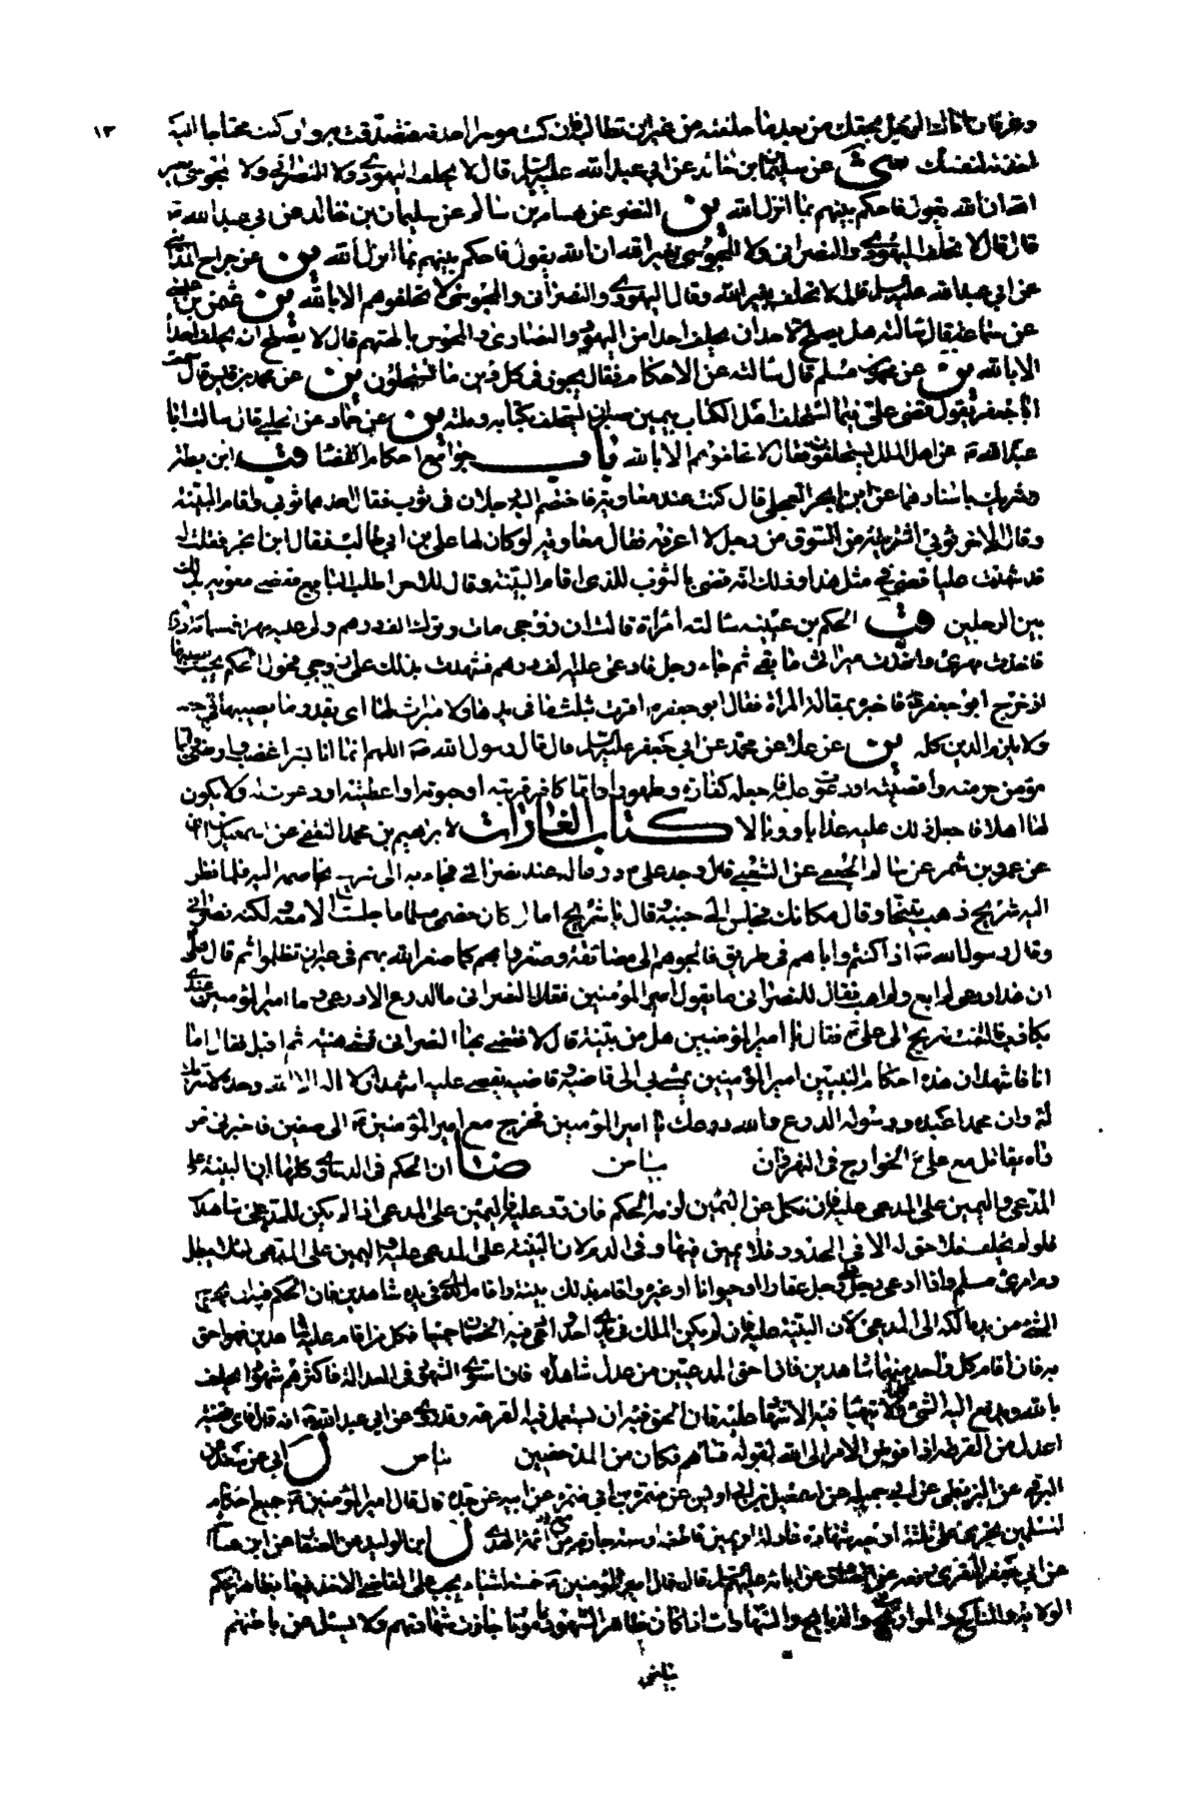 ١٣
وعرفان اتاك الرجل بحقك من بعد ما حلفته من غير ان تطالبه فان كنت موسرا اخذته فتصدقت به وان كنت محتاجا اليه
اخذته لنفسك عن سليمان بن خالد عن ابي عبد الله عليه السلام قال لا يحلف اليهودي ولا النصراني ولا المجوسي بغير
الله ان الله يقول فاحكم بينهم بما انزل الله ين النضر عن هشام بن سالم عن سليمان بن خالد عن ابي عبد الله ع
قال قال لا يحلف اليهودي والنصراني ولا المجوسي بغير الله ان الله يقول فاحكم بينهم بما انزل الله ين عن جراح المدائني
عن ابي عبد الله عليه السلم قال لا يحلف بغير الله وقال اليهودي والنصراني والمجوسي لا تحلفوهم الا بالله ين عثمن بن عيسى
عن سماعة قال سالته هل يصلح لاحد ان يحلف احدا من اليهود والنصارى والمجوس بالهتهم قال لا يصلح ان يحلف احدا
الا بالله ين عن محمد بن مسلم قال سالته عن الاحكام فقال يجوز في كل دين ما يستحلون ين عن محمد بن قيس قال سمعت
ابا جعفر يقول قضى علي فيما استحلف اهل الكتاب بيمين صبر ان يستحلف بكتابه وملته ين عن حماد عن الحلبي قال سالت ابا
عبد الله ع عن اهل الملل يستحلفون فقال لا تحلفوهم الا بالله باب جوامع احكام القضاء قب ابن بطة
وشريك باسنادهما عن ابن ابجر العجلي قال كنت عند معاوية فاختصم اليه رجلان في ثوب فقال احدهما ثوبي واقام البينة
وقال الاخر ثوبي اشتريته من السوق من رجل لا اعرفه فقال معاوية لو كان لها علي بن ابي طالب فقال ابن ابجر فقلت له
قد شهدت عليا قضى في مثل هذا وذلك انه قضى بالثوب للذي اقام البينة وقال للاخر اطلب البايع فقضى معوية بذلك
بين الرجلين قب الحكم بن عيينة سالته امراة قالت ان زوجي مات وترك الف درهم ولي عليه مهر خمسمائة درهم
فاخذت مهري واخذت ميراثي مما بقي ثم جاء رجل فادعى عليه الف درهم فشهدت بذلك على زوجي فحول الحكم يحسب نصيبها
اذ خرج ابو جعفر ع فاخبره بمقالة المراة فقال ابو جعفر ع اقرت بثلث ما في يدها ولا ميراث لها اي بقدر ما يصيبها في حصته
ولا يلزم الدين كله ين عن علاء عن محمد عن ابي جعفر عليه السلام قال قال رسول الله ص اللهم انما انا بشر اغضب وارضى وايما
مؤمن حرمته واقصيته او دعوت عليه فاجعله كفارة وطهورا وايما كافر قربته او حبوته او اعطيته او دعوت له ولا يكون
لها اهلا فاجعل ذلك عليه عذابا ووبالا كتاب الغارات لابراهيم بن محمد الثقفي عن اسمعيل بن ابان
عن عمرو بن شمر عن سالم الجعفي عن الشعبي قال وجد علي ع درعا له عند نصراني فجاء به الى شريح يخاصمه اليه فلما نظر
اليه شريح ذهب يتنحى وقال مكانك فجلس الى جنبه وقال يا شريح اما لو كان خصمي مسلما ما جلست الا معه ولكنه نصراني
وقال رسول الله ص اذا كنتم واياهم في طريق فالجؤهم الى مضايقه وصغروا بهم كما صغر الله بهم في غير ان تظلموا ثم قال علي
ان هذا درعي لم ابع ولم اهب فقال للنصراني ما يقول امير المؤمنين فقال النصراني ما الدرع الا درعي وما امير المؤمنين عندي
بكاذب فالتفت شريح الى علي ع فقال يا امير المؤمنين هل من بينة قال لا فقضى بها للنصراني فمشى هنيئة ثم اقبل فقال اما
انا فاشهد ان هذه احكام النبيين امير المؤمنين يمشي بي الى قاضيه وقاضيه يقضي عليه اشهد ان لا اله الا الله وحده لا شريك
له وان محمدا عبده ورسوله الدرع والله درعك يا امير المؤمنين فخرج مع امير المؤمنين ع الى صفين فاخبرني من
راه يقاتل مع علي ع الخوارج في النهروان بيان ضا ان الحكم في الدعاوى كلها ان البينة على
المدعي واليمين على المدعى عليه فان نكل عن اليمين لزمه الحكم فان رد عليه اليمين على المدعي اذا لم يكن للمدعي شاهدا
فلو لم يحلف فلا حق له الا في الحدود فلا يمين فيها وفي الدم لان البينة على المدعى عليه واليمين على المدعي لئلا يبطل
دم امرئ مسلم واذا ادعى رجل على رجل عقارا او حيوانا او غيره واقام بذلك بينة واقام الذي في يده شاهدين فان الحكم فيه ان يخرج
الشيء من يد مالكه الى المدعي لان البينة عليه فان لم يكن الملك في يدي احد وادعى فيه الخصمان جميعا فكل من اقام عليه شاهدين فهو احق
به فان اقام كل واحد منهما شاهدين فان احق المدعيين من عدل شاهداه فان استوى الشهود في العدالة فاكثرهم شهودا يحلف
بالله ويدفع اليه الشيء وكلما لا يتهيا فيه الاشهاد عليه فان الحق فيه ان يستعمل فيه القرعة وقد روي عن ابي عبد الله ع انه قال فاي قضية
اعدل من القرعة اذا فوض الامر الى الله لقوله فساهم فكان من المدحضين بيان ل ابي عن سعد عن
البرقي عن البزنطي عن ابي جميلة عن اسمعيل بن ابي اويس عن ضمرة بن ابي ضمرة عن ابيه عن جده قال قال امير المؤمنين ع جميع احكام
المسلمين تجري على ثلثة اوجه شهادة عادلة او يمين قاطعة او سنة جارية من ائمة الهدى ل ابن الوليد عن الصفار عن ابن هاشم
عن ابي جعفر المقري رفعه عن الصادق عن ابائه عليهم السلم قال قال امير المؤمنين ع خمسة اشياء يجب على القاضي الاخذ فيها بظاهر الحكم
الولاية والمناكح والمواريث والذبايح والشهادات اذا كان ظاهر الشهود مامونا جازت شهادتهم ولا يسئل عن باطنهم